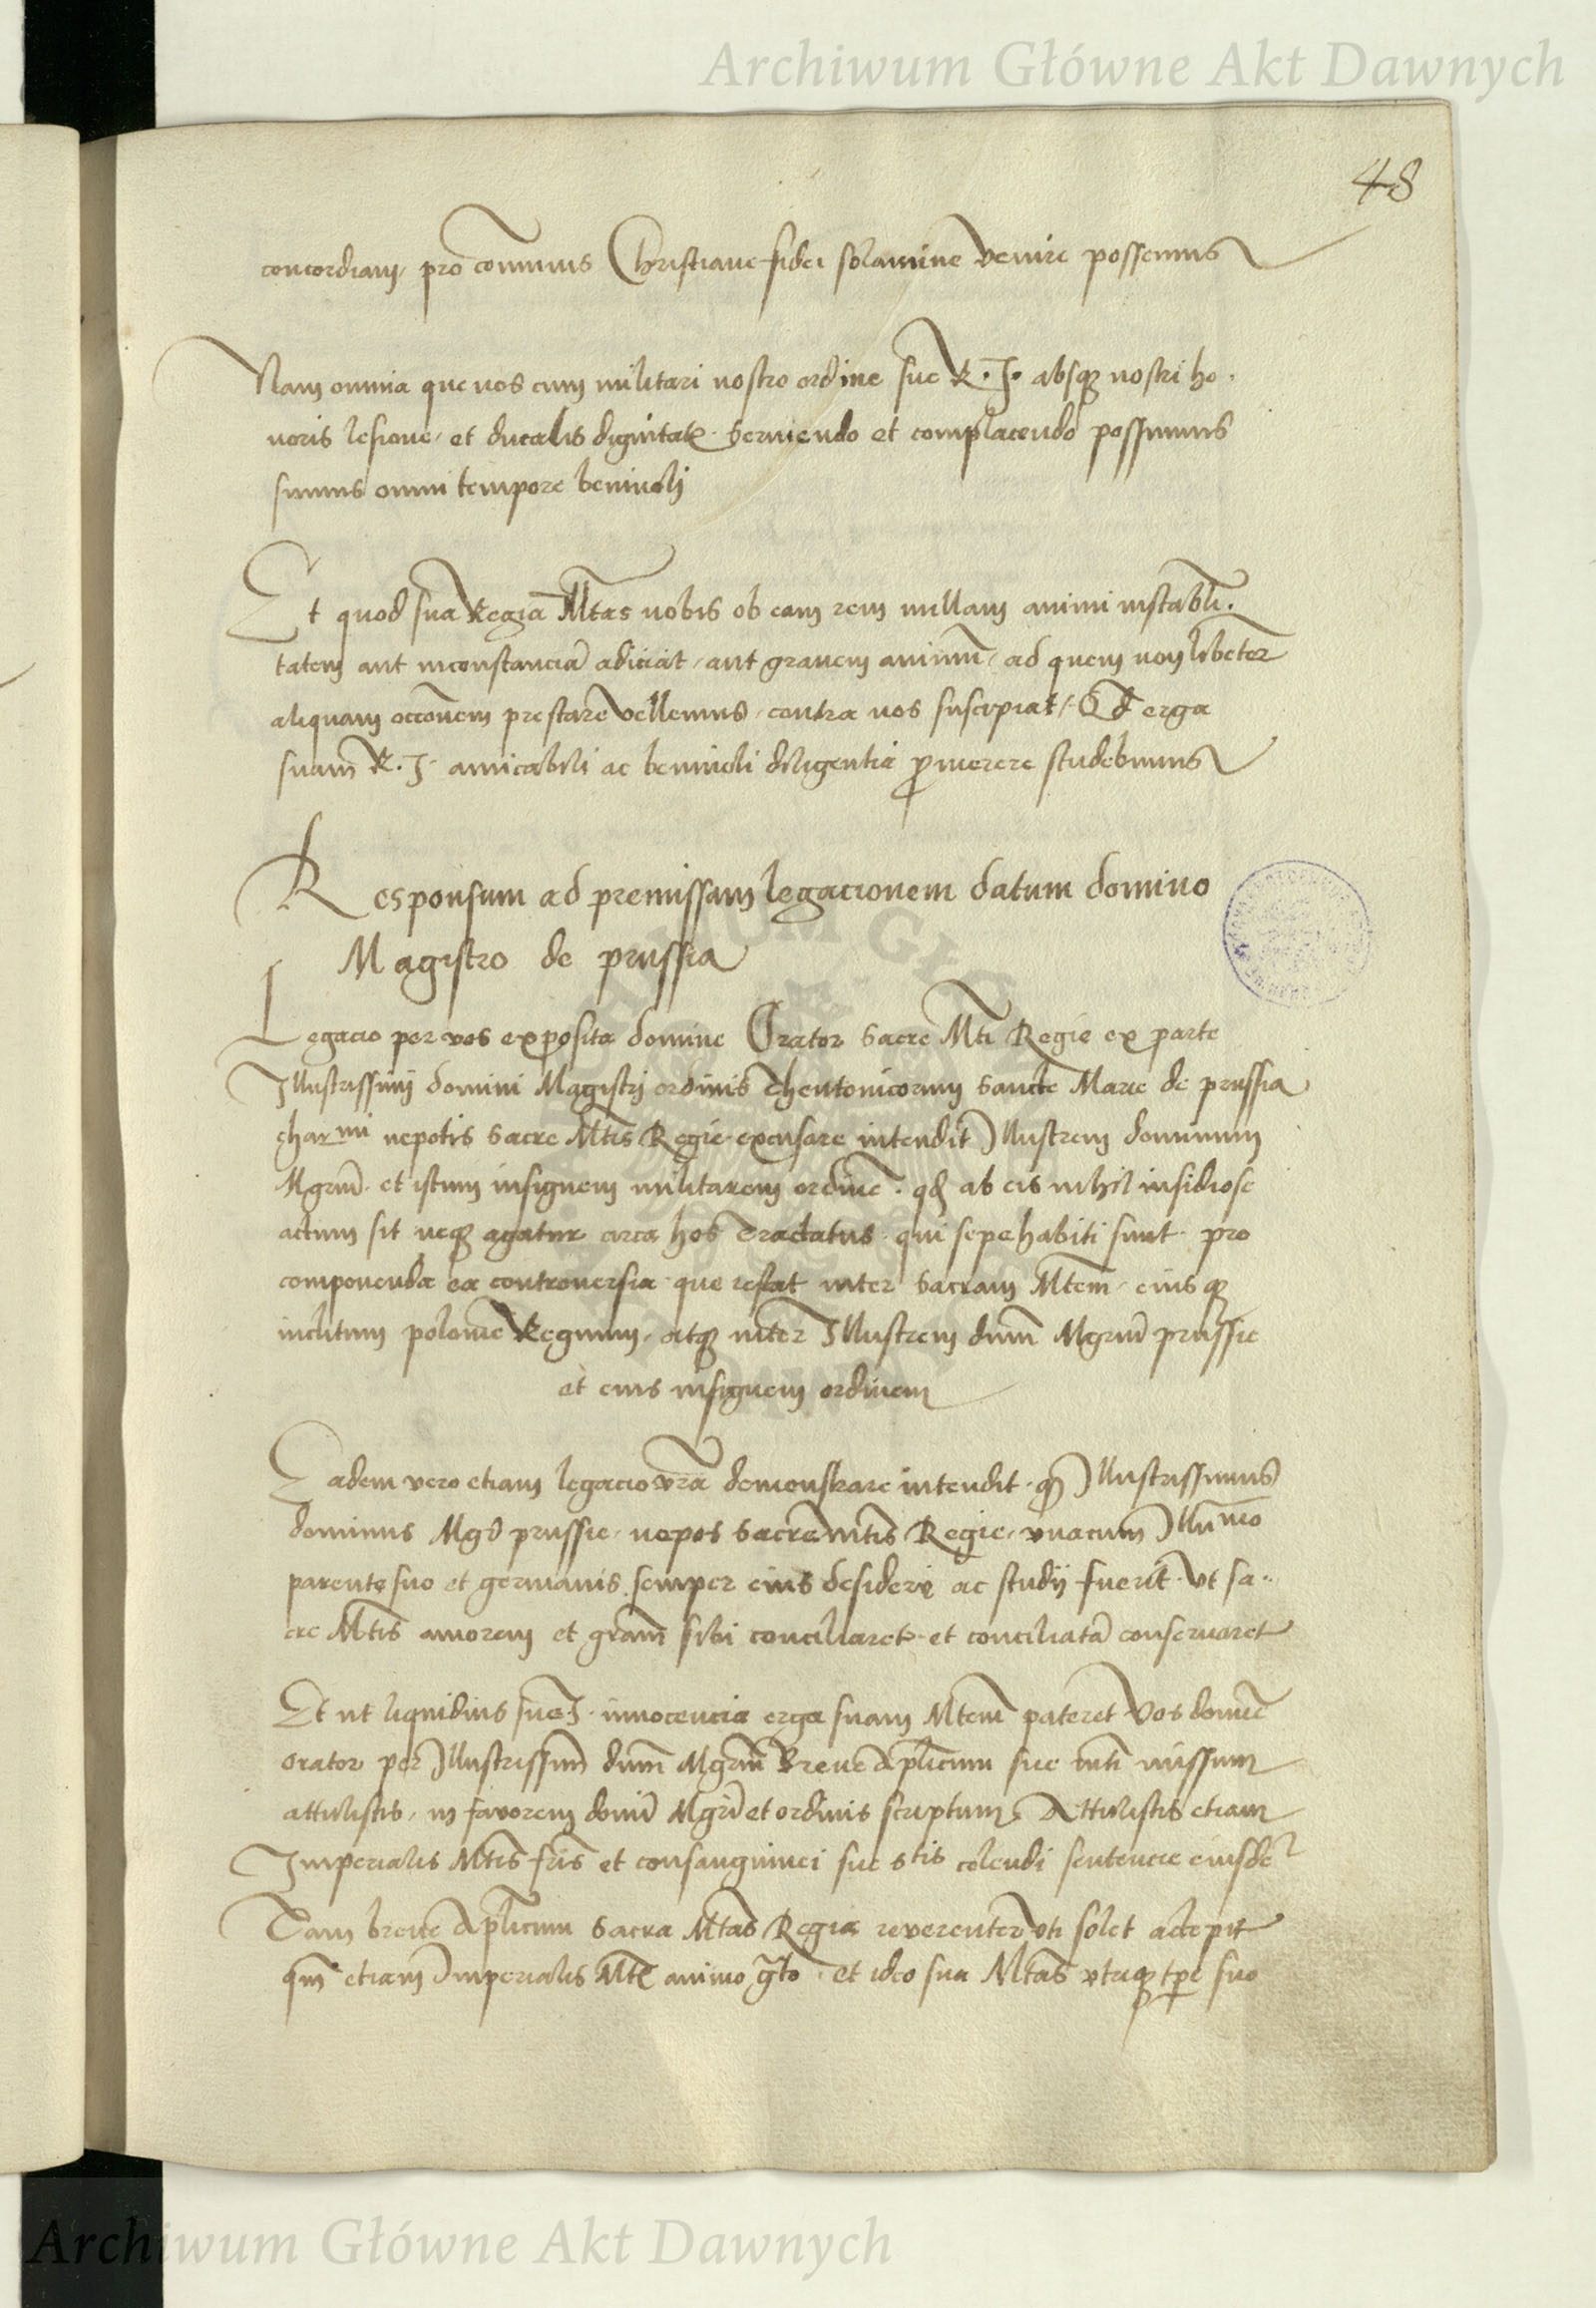 Archiwum Główne Akt Dawnych
48
concordiam, pro comunis Christiane fidei solamine venire possemus
Nam omnia que nos cum militari nostro ordine sue R. I. absq nostri ho-
noris lesione, et ducalis dignitat. Serviendo et complacendo possumus
sumus omni tempore benivoli
Et quod sua Regia Mtas nobis ob eam rem nullam animi instabli-
tatem aut inconstancia adiciat, aut gravem animu, ad quem non libeter
aliquam occonem prestare vellemus, contra nos suscipiat, Qd erga
suam R. I. amicabili ac benivoli diligentia pmerere studebimus
Responsum ad premissam legacionem datum domino
Magistro de prussia
Legacio per vos exposita domine Orator Sacre Mti Regie ex parte
Illustrissimi domini Magistri ordinis Theutonicorum Sancte Marie de prussia
charmi nepotis Sacre Mtis Regie excusare intendit Illustrem dominum
Mgrm et istum insignem militarem ordine. qd ab eis nihil insidiose
actum sit neq agatur circa hos tractatus qui sepe habiti sunt pro
componenda ea controversia que restat inter Sacram Mtem, eiusq
inclitum polonie Regnum, atq inter Illustrem dnm Mgrm prussie
et eius insignem ordinem
Eadem vero etiam legacio vra demonstrare intendit. qd Illustrissimus
dominus Mgr prussie, nepos Sacre mtis Regie, unacum Illumo
parente suo et germanis semper eius desiderij ac studij fuerit ut sa-
cre Mtis amorem et gram sibi conciliaret et conciliata conservaret
Et ut liquidius sue I. innocencia erga suam Mtem pateret Vos domine
Orator per Illustrissim dnm Mgrm Breve Aplicum sue mti missum
attulistis, in favorem domi Mgri et ordinis scriptum, Attulistis etiam
Imperialis Mtis fris et consanguinei sue Stis colendi sentencie eiusde
Tam breve Aplicum Sacra Mtas Regia reverenter uti solet accepit
qm etiam Imperialis Mts animo grto, et ideo sua Mtas utriq tpe suo
Archiwum Główne Akt Dawnych